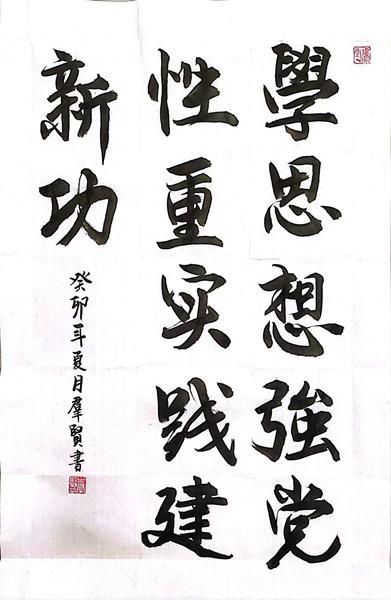 學思想強党
性重实践建
新功
癸卯年夏月羣賢書